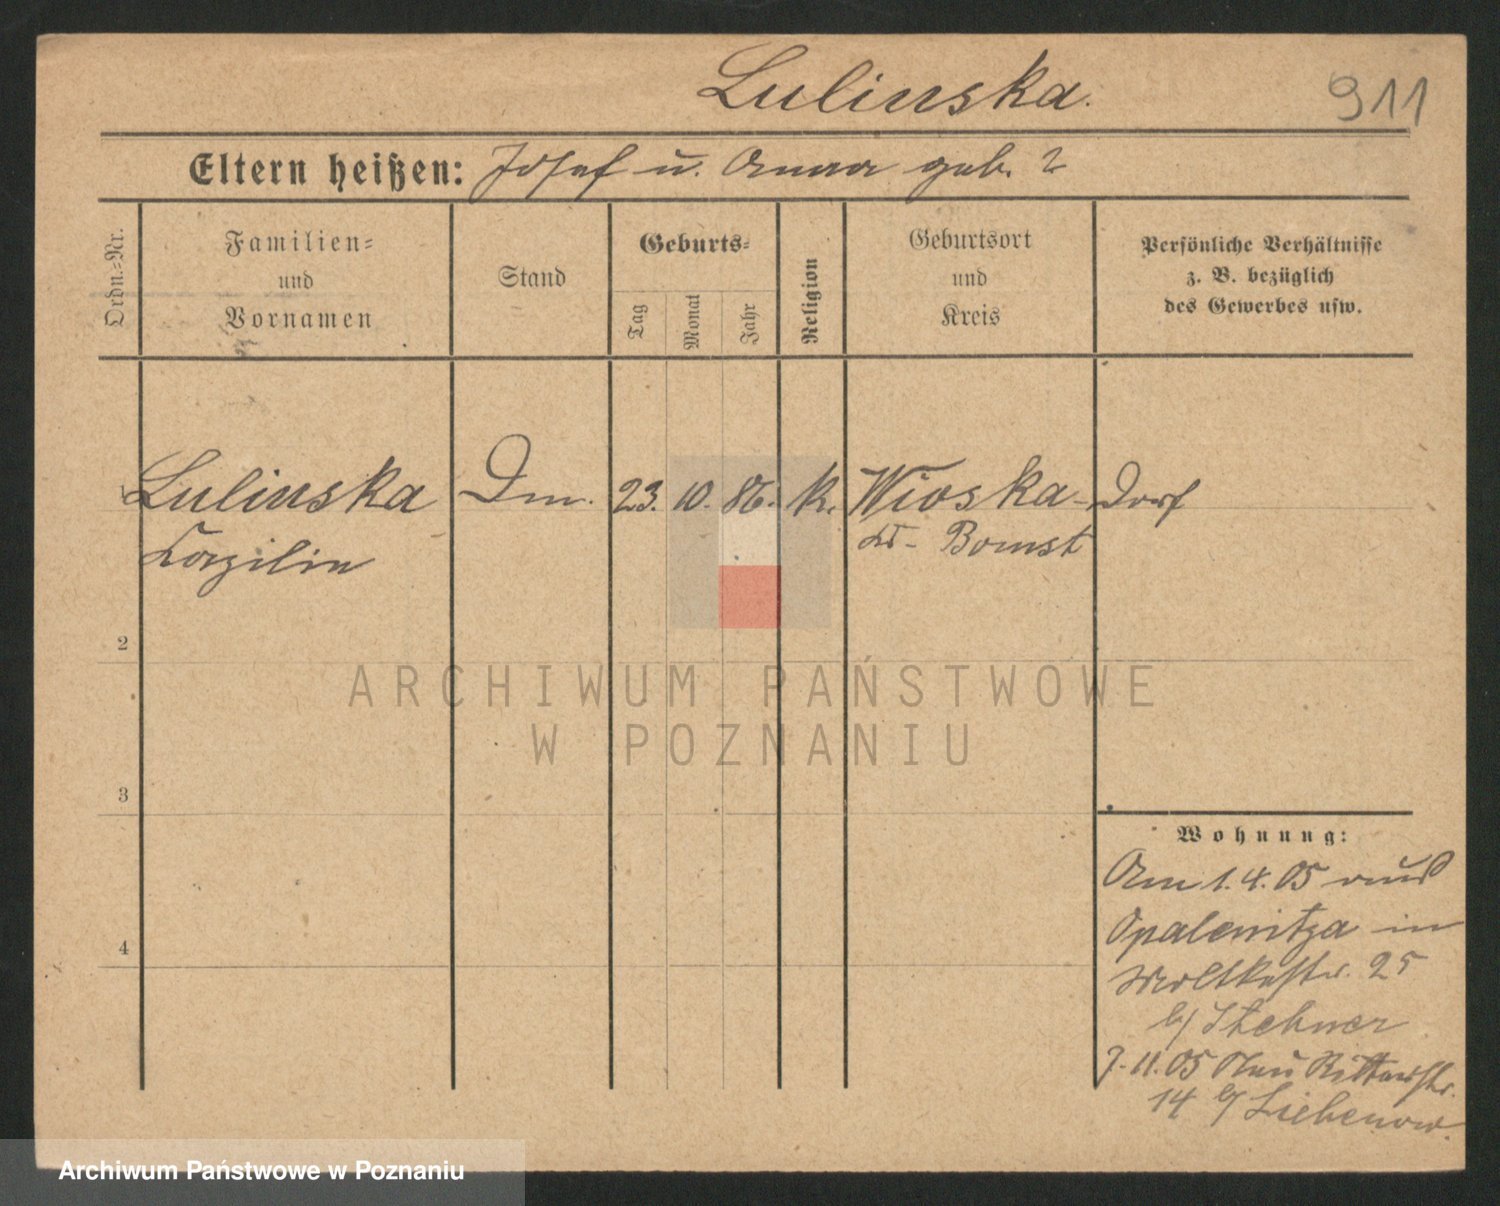 Lulinska.
911
Eltern heißen: Josef u. Anna geb. ?
Ordn.=Nr.
Familien=
und
Vornamen
Stand
Geburts=
Tag
Monat
Jahr
Religion
Geburtsort
und
Kreis
Persönliche Verhältnisse
z. B. bezüglich
des Gewerbes usw.
Lulinska
23. 10. 86. k. Wioska-Dorf
Kr. Bomst
2
3
4
Wohnung:
Am 1.4.05 aus
Opalenitza in
Moltkestr. 25
b/ Stehner
7.11.05 Neu Ritterstr.
14 b/ Liebenow.
ARCHIWUM PAŃSTWOWE
W POZNANIU
Archiwum Państwowe w Poznaniu